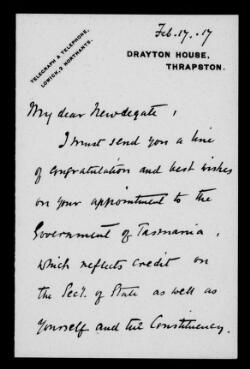 Feb. 17. 17
TELEGRAPH & TELEPHONE,
LOWICK, 2 NORTHANTS.
DRAYTON HOUSE,
THRAPSTON.
My dear Newdegate,
I must send you a line
of congratulation and best wishes
on your appointment to the
Government of Tasmania,
which reflects credit on
the Secy. of State as well as
Yourself and the Constituency.